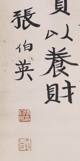 以養財
張伯英